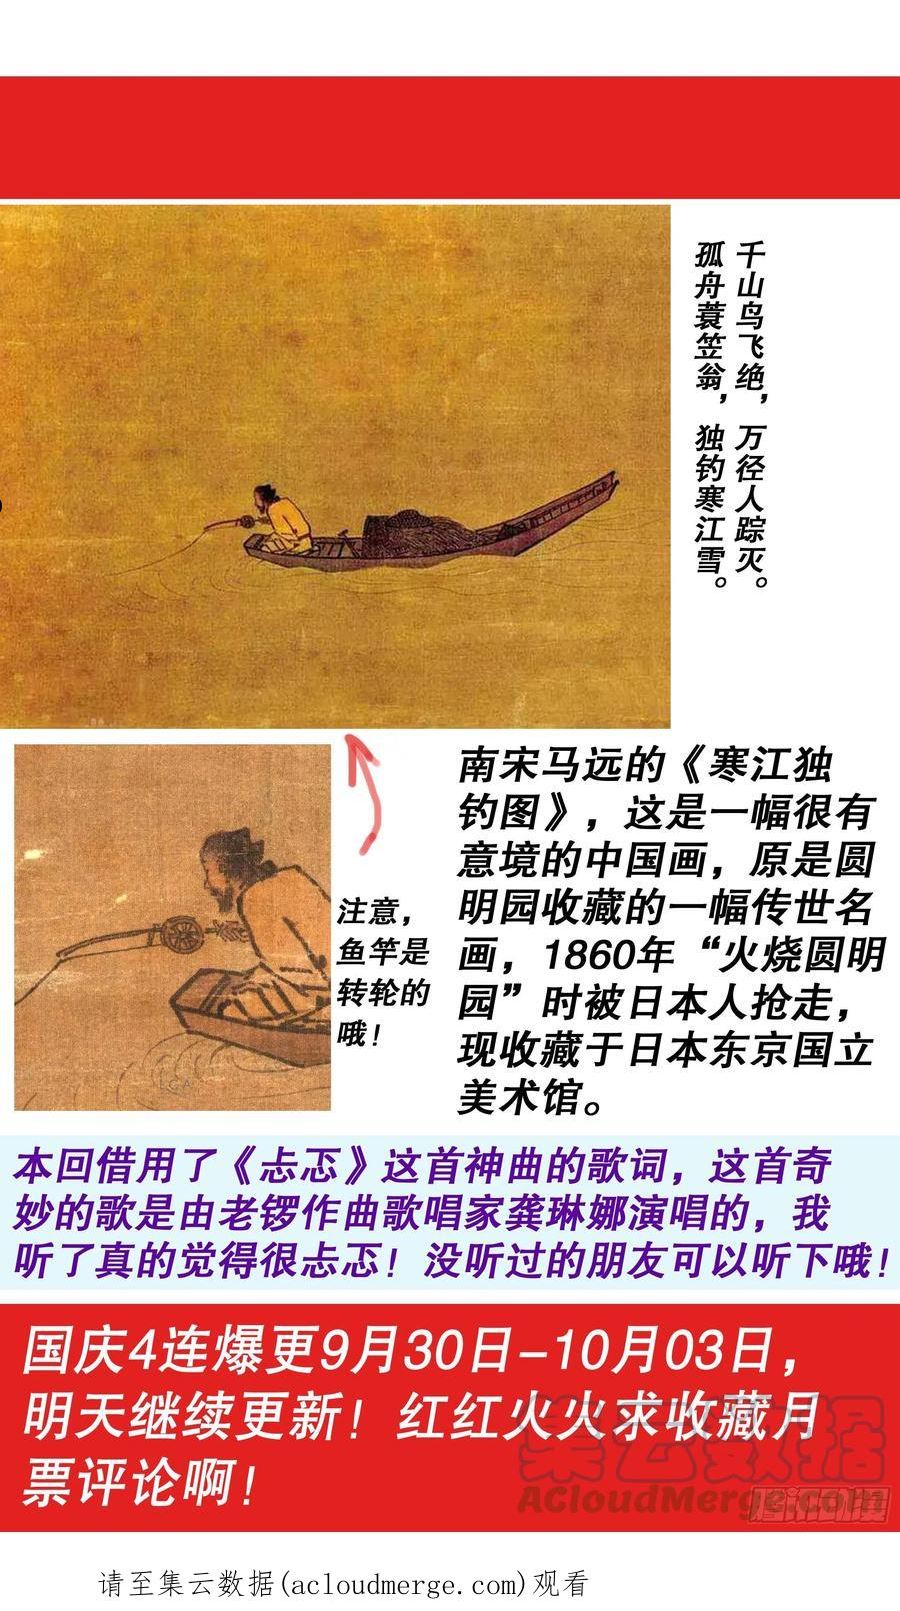 千山鸟飞绝，万径人踪灭。
孤舟蓑笠翁，独钓寒江雪。
南宋马远的《寒江独
钓图》，这是一幅很有
意境的中国画，原是圆
明园收藏的一幅传世名
画，1860年“火烧圆明
园”时被日本人抢走，
现收藏于日本东京国立
美术馆。
注意，
鱼竿是
转轮的
哦！
本回借用了《忐忑》这首神曲的歌词，这首奇
妙的歌是由老锣作曲歌唱家龚琳娜演唱的，我
听了真的觉得很忐忑！没听过的朋友可以听下哦！
国庆4连爆更9月30日-10月03日，
明天继续更新！红红火火求收藏月
票评论啊！
集云数据
ACloudMerge.com
请至集云数据(acloudmerge.com)观看